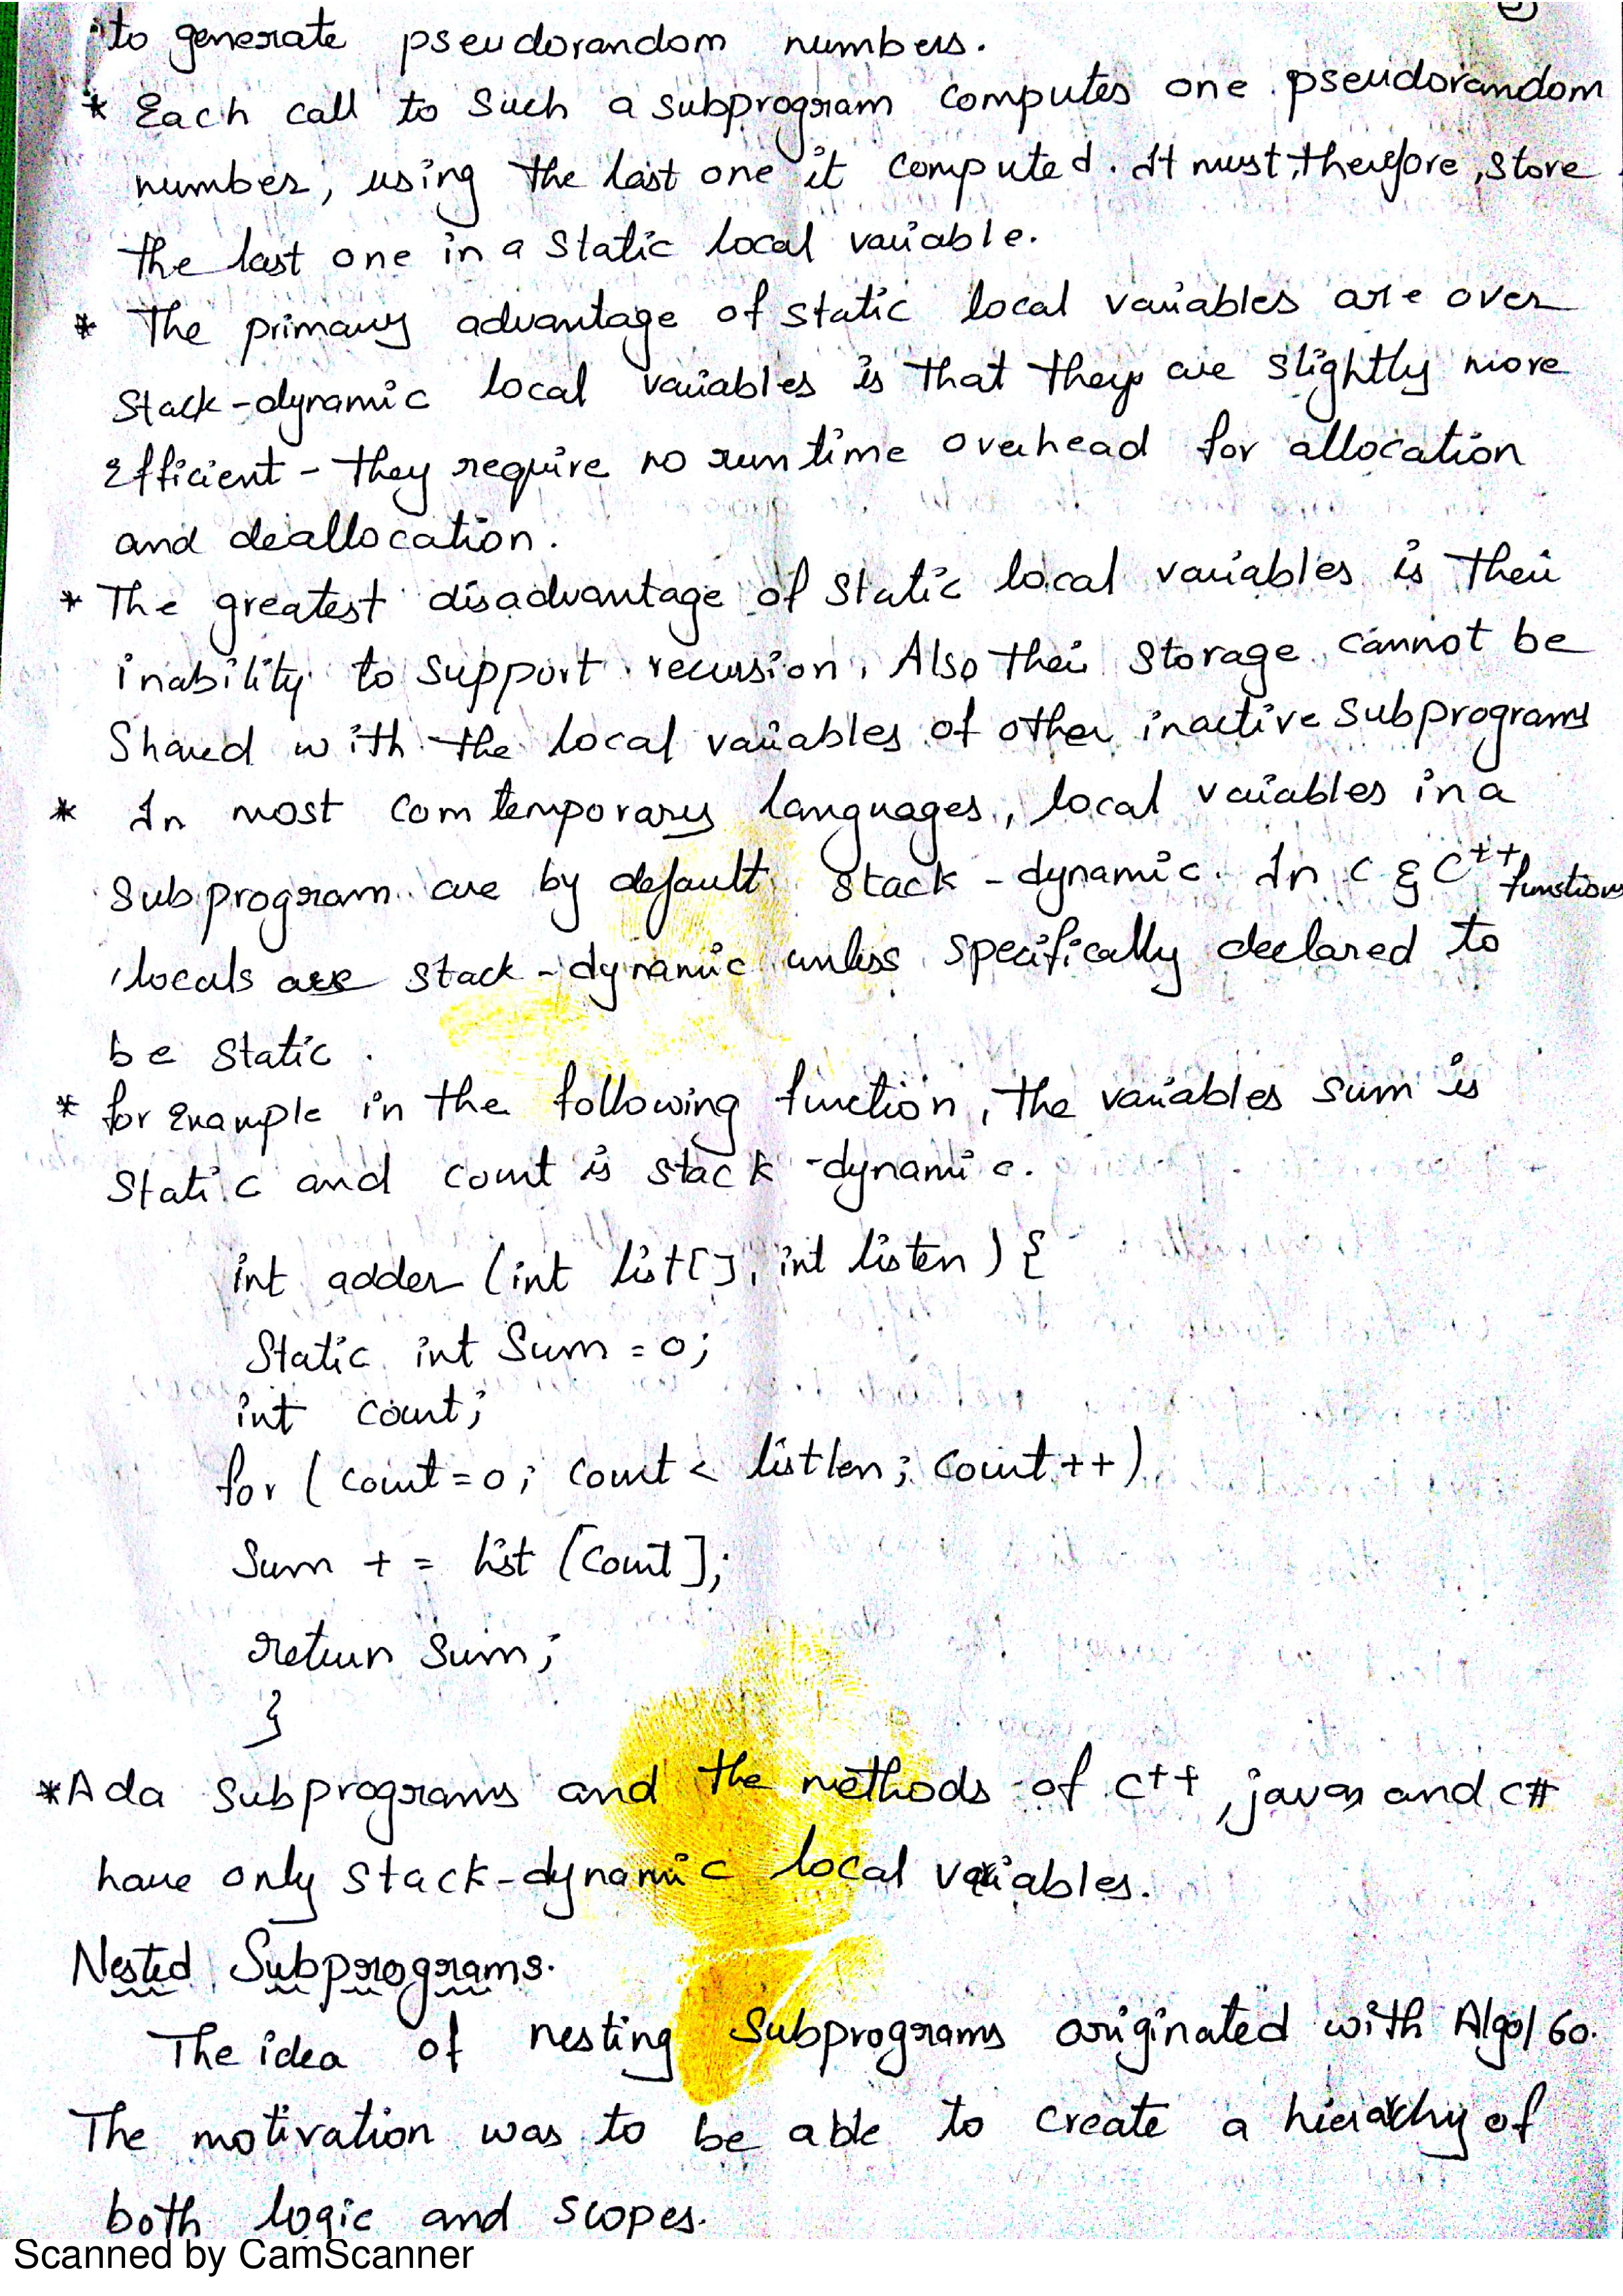 to generate pseudorandom numbers.
* Each call to such a subprogram computes one pseudorandom
number, using the last one it computed. It must, therefore, store
the last one in a static local variable.
* The primary advantage of static local variables are over
stack-dynamic local variables is that they are slightly more
Efficient - they require no run time overhead for allocation
and deallocation.
* The greatest disadvantage of static local variables is their
inability to support recursion. Also their storage cannot be
Shared with the local variables of other inactive subprograms
* In most comtemporary languages, local variables in a
subprogram are by default stack-dynamic. In C & C++ functions
locals are stack-dynamic unless specifically declared to
be static.
* for Example in the following function, the variables sum is
static and count is stack-dynamic.
int adder (int list[], int listen) {
Static int Sum = 0;
int count;
for (count=0; count < listlen; count++)
Sum += list [count];
return sum;
}
* Ada subprograms and the methods of C++, java, and C#
have only stack-dynamic local variables.
Nested Subprograms.
The idea of nesting subprograms originated with Algol 60.
The motivation was to be able to create a hierarchy of
both logic and scopes.
Scanned by CamScanner